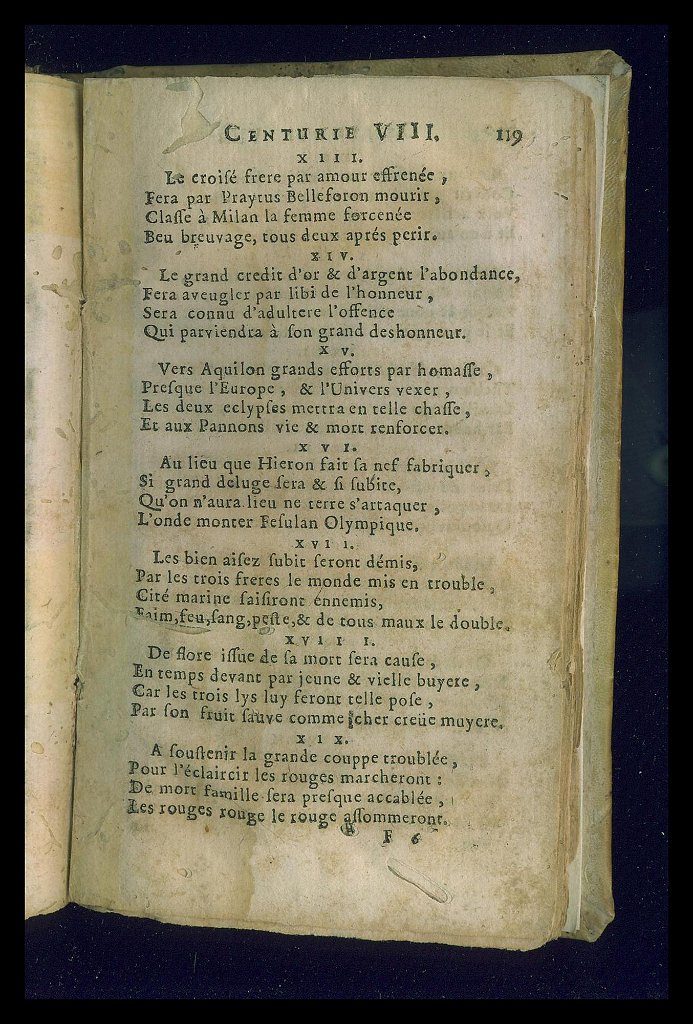 CENTURIE VIII. 119
XIII.
Le croisé frere par amour effrenée,
Fera par Praytus Belleforon mourir,
Classe à Milan la femme forcenée
Beu breuvage, tous deux aprés perir.
XIV.
Le grand credit d'or & d'argent l'abondance,
Fera aveugler par libi de l'honneur,
Sera connu d'adultere l'offence
Qui parviendra à son grand deshonneur.
XV.
Vers Aquilon grands efforts par homasse,
Presque l'Europe, & l'Univers vexer,
Les deux eclypses mettra en telle chasse,
Et aux Pannons vie & mort renforcer.
XVI.
Au lieu que Hieron fait sa nef fabriquer,
Si grand deluge sera & si subite,
Qu'on n'aura lieu ne terre s'attaquer,
L'onde monter Fesulan Olympique.
XVII.
Les bien aisez subit seront démis,
Par les trois freres le monde mis en trouble,
Cité marine saisiront ennemis,
Faim, feu, sang, peste, & de tous maux le double.
XVIII.
De flore issue de sa mort sera cause,
En temps devant par jeune & vielle buyere,
Car les trois lys luy feront telle pose,
Par son fruit sauve comme cher creüe muyere.
XIX.
A soustenir la grande couppe troublée,
Pour l'éclaircir les rouges marcheront:
De mort famille sera presque accablée,
Les rouges rouge le rouge assommeront.
F 6